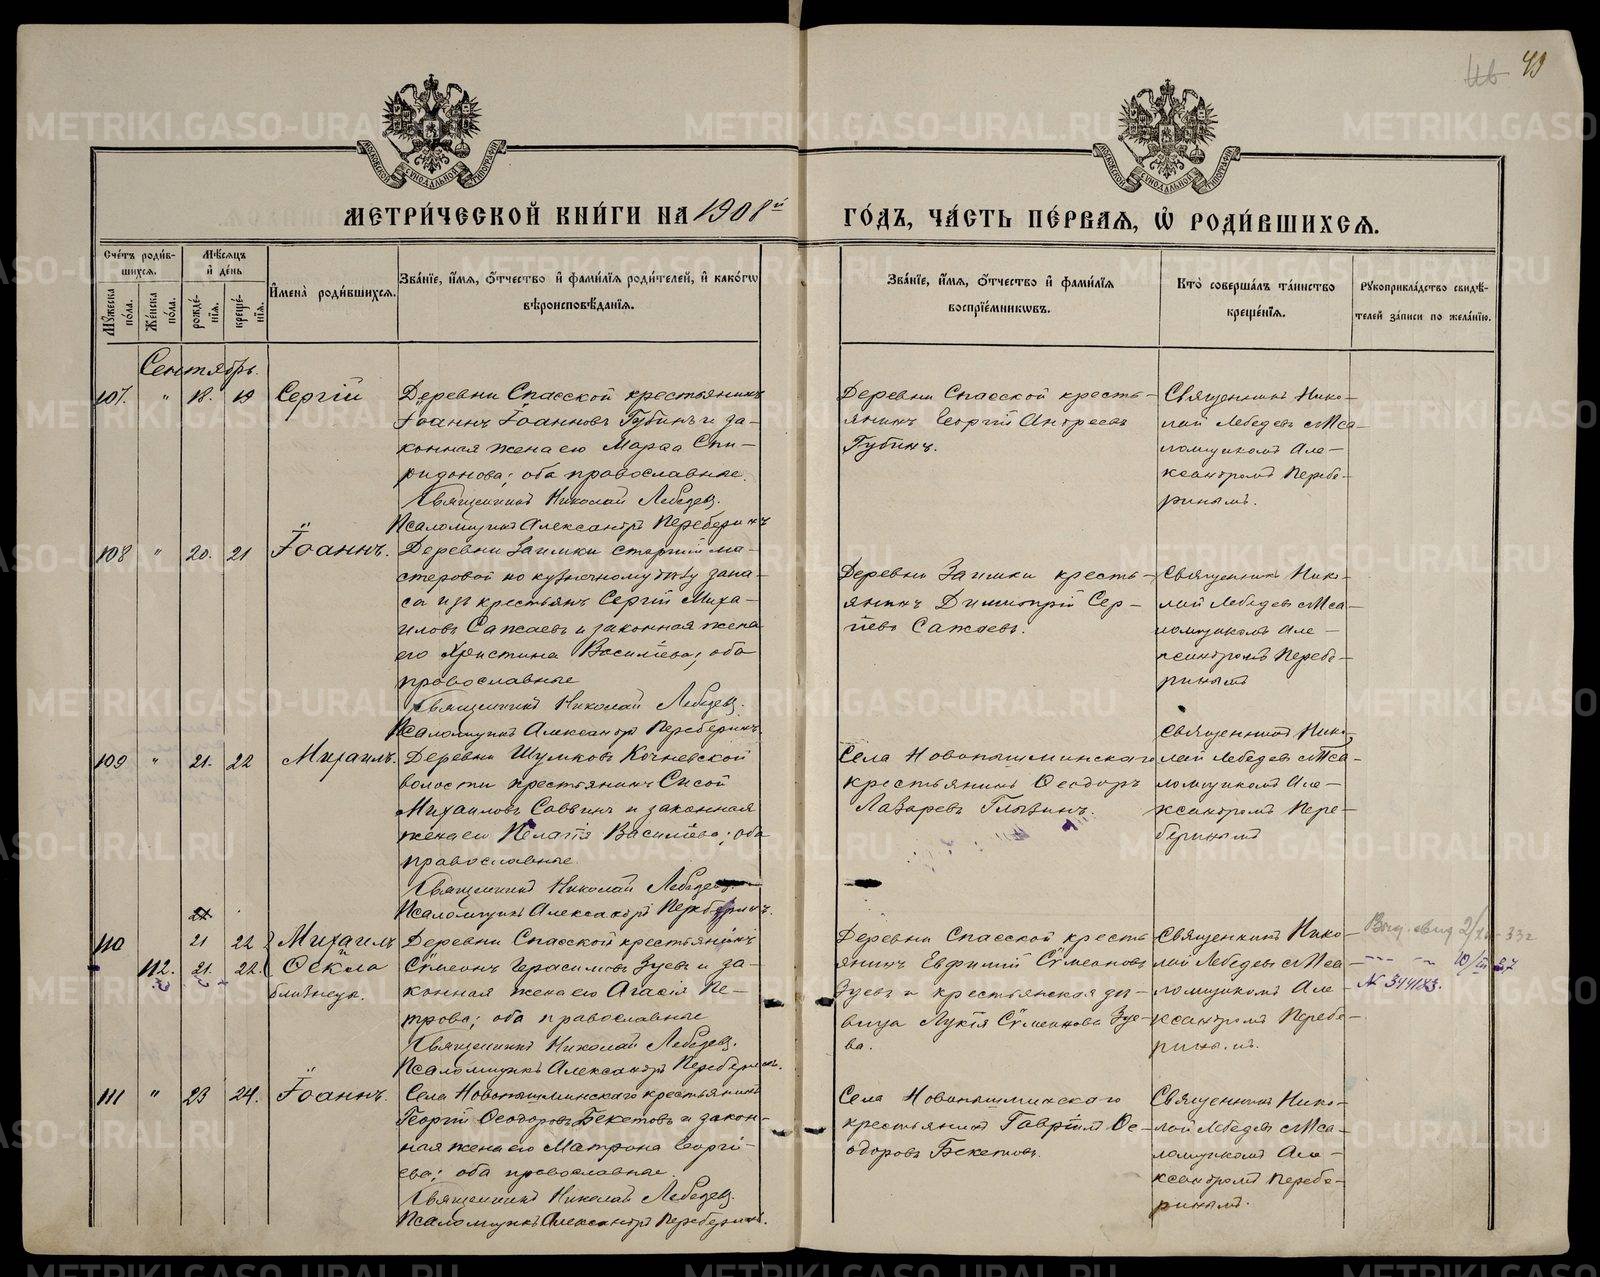 49
МЕТРИ́ЧЕСКОЙ КНИ́ГИ НА 1908й
ГО́ДЪ, ЧА́СТЬ ПЕ́РВАѦ, Ѡ҆ РОДИ́ВШИХСѦ.
Счетъ роди́вшихсѧ.
Мѣ́сѧцъ и҆ де́нь
Мꙋ́жеска по́ла.
Же́нска по́ла.
рожде́нїѧ.
креще́нїѧ.
И҆мена̀ роди́вшихсѧ.
Зва́нїе, и҆́мѧ, ѻ҆́тчество и҆ фами́лїѧ роди́телей, и҆ како́гѡ
вѣроисповѣ́данїѧ.
Зва́нїе, и҆́мѧ, ѻ҆́тчество и҆ фами́лїѧ
воспрїе́мниковъ.
Кто̀ соверша́лъ та́инство
креще́нїѧ.
Рꙋкоприкла́дство свидѣ́-
телей за́писи по жела́нїю.
Сентябрь.
107. " 18. 19 Сергiй
Деревни Спасской крестьянинъ
Iоаннъ Iоанновъ Губинъ и за-
конная жена его Марѳа Спи-
ридонова; оба православные.
Священникъ Николай Лебедевъ.
Псаломщикъ Александръ Переберинъ
Деревни Спасской кресть-
янинъ Георгiй Андреевъ
Губинъ.
Священникъ Нико-
лай Лебедевъ съ Пса-
ломщикомъ Але-
ксандромъ Перебе-
ринымъ.
108 " 20. 21 Iоаннъ.
Деревни Заимки старшiй ма-
стеровой по кузнечному дѣлу запа-
са изъ крестьянъ Сергiй Миха-
иловъ Сажаевъ и законная жена
его Христина Василiева; оба
православные
Священникъ Николай Лебедевъ.
Псаломщикъ Александръ Переберинъ.
Деревни Заимки кресть-
янинъ Димитрiй Сер-
гiевъ Сажаевъ.
Священникъ Нико-
лай Лебедевъ съ Пса-
ломщикомъ Але-
ксандромъ Перебе-
ринымъ
109 " 21. 22 Михаилъ.
Деревни Шумковъ Кочневской
волости крестьянинъ Сисой
Михаиловъ Саввинъ и законная
жена его Пелагiя Василiева; оба
православные.
Священникъ Николай Лебедевъ.
Псаломщикъ Александръ Переберинъ.
Села Новопышминскаго
крестьянинъ Ѳеодоръ
Лазаревъ Глызинъ.
Священникъ Нико-
лай Лебедевъ съ Пса-
ломщикомъ Але-
ксандромъ Пере-
беринымъ
110 21 22 Михаилъ
112. 21. 22. и Ѳекла
близнецы.
Деревни Спасской крестьянинъ
Сѵмеонъ Герасимовъ Зуевъ и за-
конная жена его Агаѳiя Пе-
трова; оба православные
Священникъ Николай Лебедевъ.
Псаломщикъ Александръ Переберинъ.
Деревни Спасской кресть
янинъ Евфимiй Сѵмеоновъ
Зуевъ и крестьянская дѣ-
вица Лукiя Сѵмеонова Зуе-
ва.
Священникъ Нико-
лай Лебедевъ съ Пса-
ломщикомъ Але-
ксандромъ Перебе-
ринымъ.
111 " 23 24. Iоаннъ.
Села Новопышминскаго крестьянинъ
Георгiй Ѳеодоровъ Бекетовъ и закон-
ная жена его Матрона Георгi-
ева; оба православные.
Священникъ Николай Лебедевъ.
Псаломщикъ Александръ Переберинъ.
Села Новопышминскаго
крестьянинъ Гаврiилъ Ѳе-
одоровъ Бекетовъ.
Священникъ Нико-
лай Лебедевъ съ Пса-
ломщикомъ Але-
ксандромъ Перебе-
ринымъ.